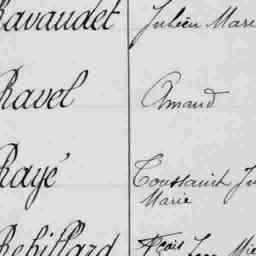 Ravaudet Julien Marie
Ravel Amand
Rayé Toussaint
Marie
Rebillard Fçois Jean